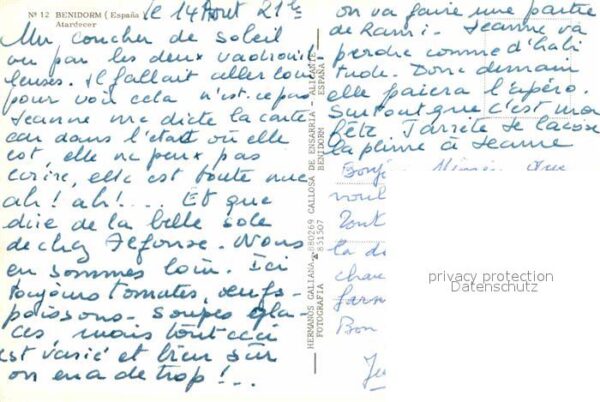 Nº 12 BENIDORM (España)
Atardecer
le 14 Aout 21 h
Un coucher de soleil
vu par les deux vadrouil
leuses. Il fallait aller loin
pour voir cela n'est-ce pas
Jeanne me dicte la carte
car dans l'état où elle
est, elle ne peux pas
écrire, elle est toute nue
ah! ah!.... Et que
dire de la belle sole
de chez Alfonse. Nous
en sommes loin. Ici
toujours tomates, oeufs
poissons - soupes gla-
ces mais tout ceci
est varié et bien sûr
on en a de trop!..
HERMANOS GALIANA - 880269 CALLOSA DE ENSARRIA - ALICANTE
FOTOGRAFIA 851507 BENIDORM ESPAÑA
on va faire une partie
de Rami. Jeanne va
perdre comme d'habi
tude. Donc demain
elle paiera l'apéro.
Surtout que c'est ma
fête J'arrête je laisse
la plume à Jeanne
Bonj
noul
Tont
la di
chau
farn
Bon
Je
privacy protection
Datenschutz